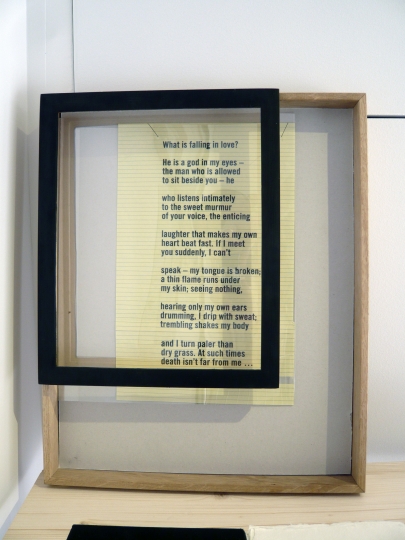 What is falling in love?
He is a god in my eyes –
the man who is allowed
to sit beside you – he
who listens intimately
to the sweet murmur
of your voice, the enticing
laughter that makes my own
heart beat fast. If I meet
you suddenly, I can't
speak – my tongue is broken;
a thin flame runs under
my skin; seeing nothing,
hearing only my own ears
drumming, I drip with sweat;
trembling shakes my body
and I turn paler than
dry grass. At such times
death isn't far from me ...